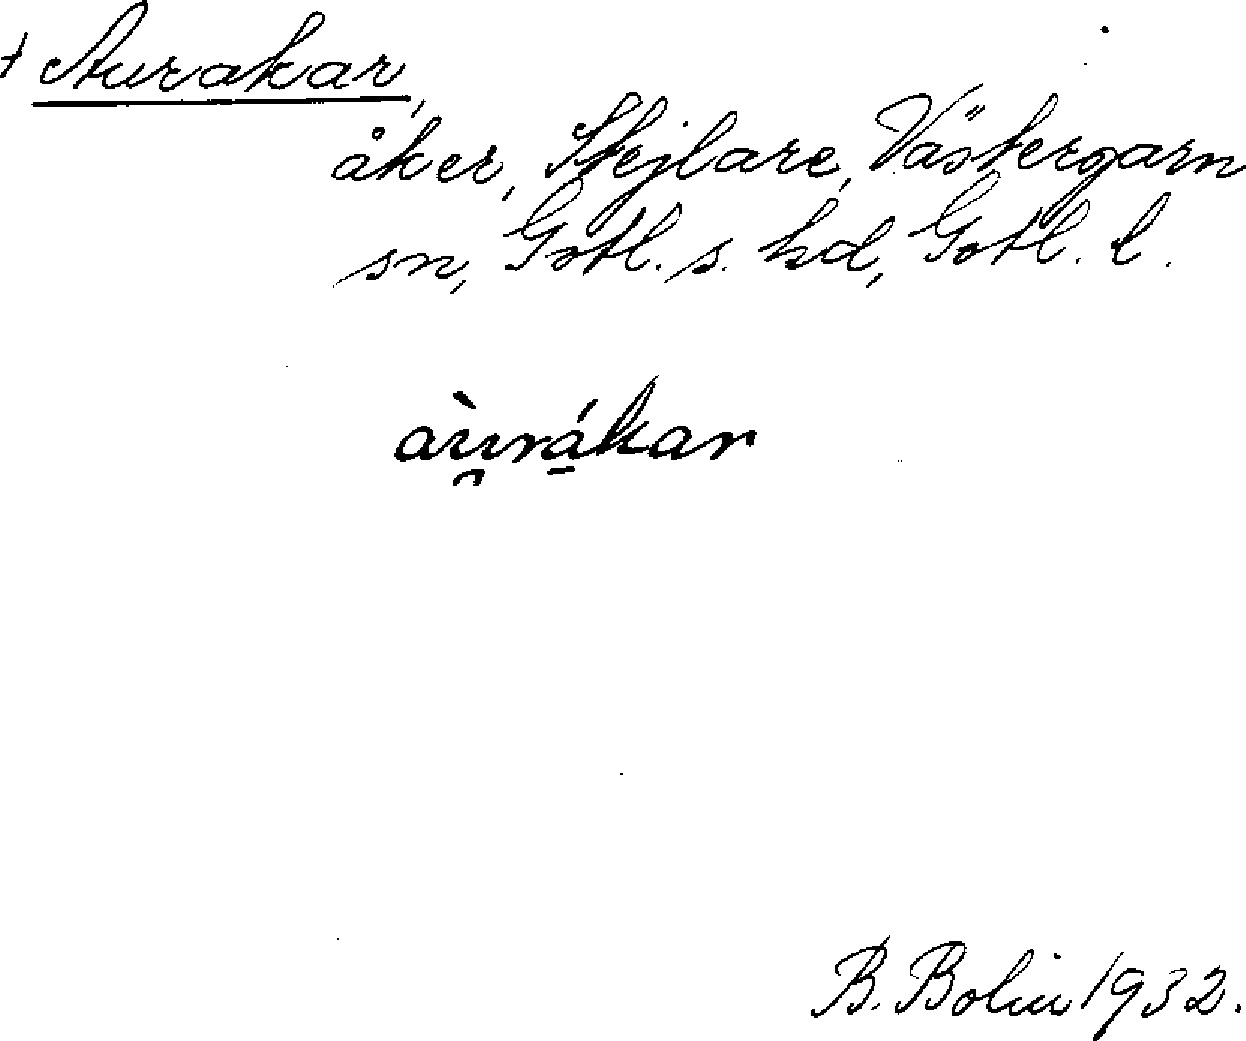 + Aurakar,
åker, Stejlare, Västergarn
sn, Gotl. s. hd, Gotl. l.
àu̯rá̱kar
B. Bolin 1932.